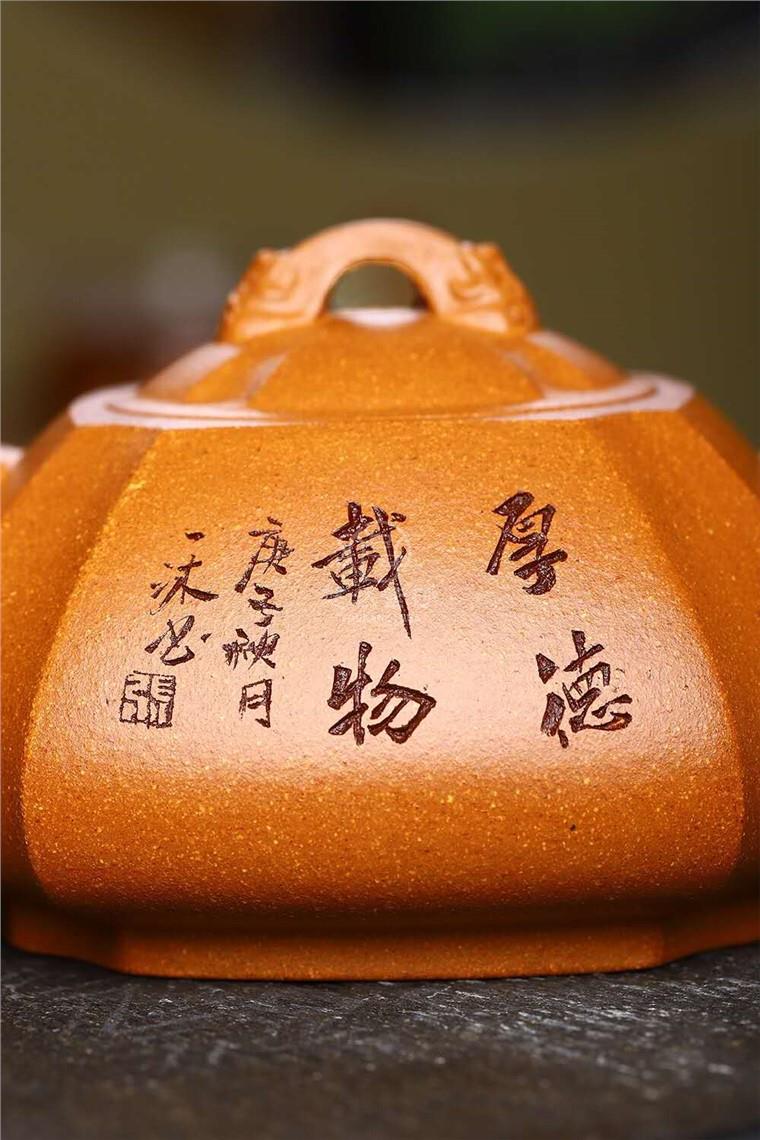 厚德
載物
庚子秋月
一沐书